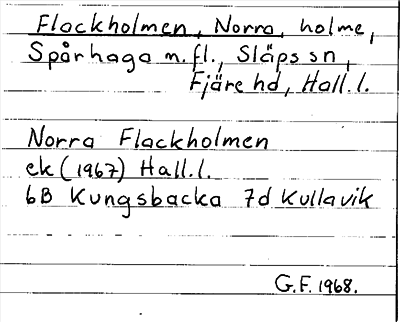 Flackholmen, Norra, holme,
Spårhaga m.fl., Släps sn,
Fjäre hd, Hall.l.
Norra Flackholmen
ek (1967) Hall.l.
6B Kungsbacka 7d Kullavik
G.F. 1968.